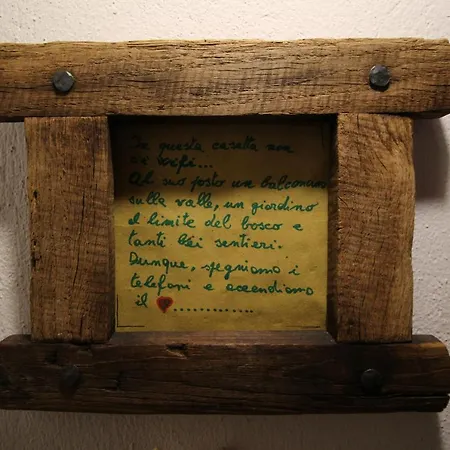 In questa casetta non
c'è wifi...
Al suo posto un balconcino
sulla valle, un giardino
al limite del bosco e
tanti bei sentieri.
Dunque, spegniamo i
telefoni e accendiamo
il ❤.............